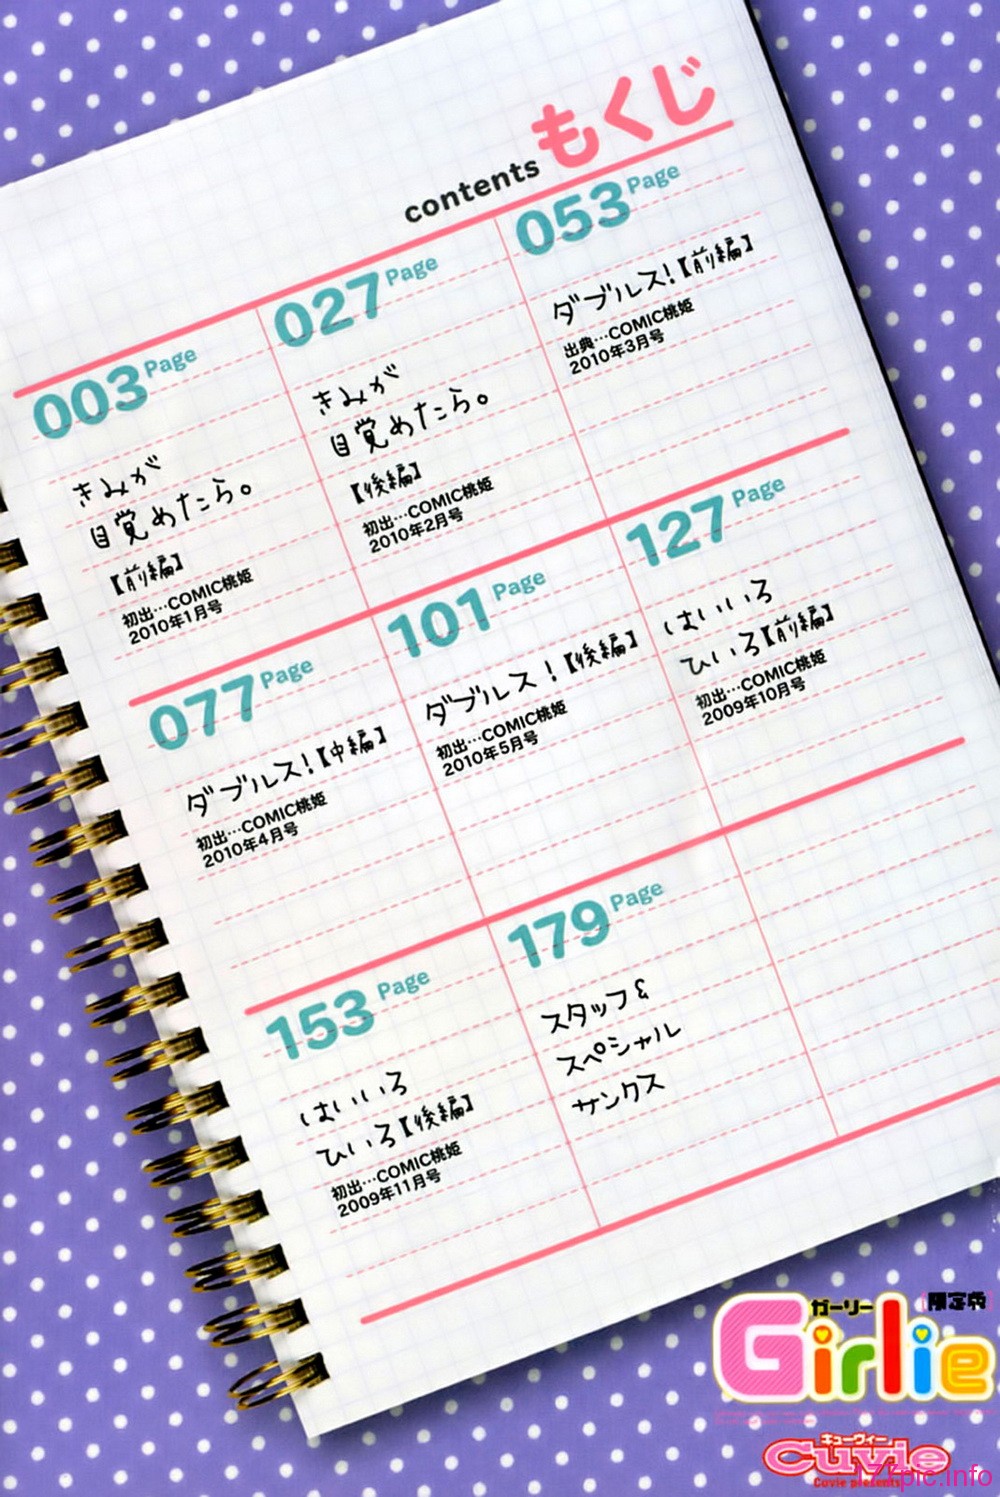 もくじ
contents
003 Page
きみが
目覚めたら。
【前編】
初出…COMIC桃姫
2010年1月号
027 Page
きみが
目覚めたら。
【後編】
初出…COMIC桃姫
2010年2月号
053 Page
ダブルス!【前編】
出典…COMIC桃姫
2010年3月号
077 Page
ダブルス!【中編】
初出…COMIC桃姫
2010年4月号
101 Page
ダブルス!【後編】
初出…COMIC桃姫
2010年5月号
127 Page
はいいろ
ひいろ【前編】
初出…COMIC桃姫
2009年10月号
153 Page
はいいろ
ひいろ【後編】
初出…COMIC桃姫
2009年11月号
179 Page
スタッフ&
スペシャル
サンクス
ガーリー
限定版
Girlie
キューヴィー
Cuvie
Cuvie presents
177pic.info